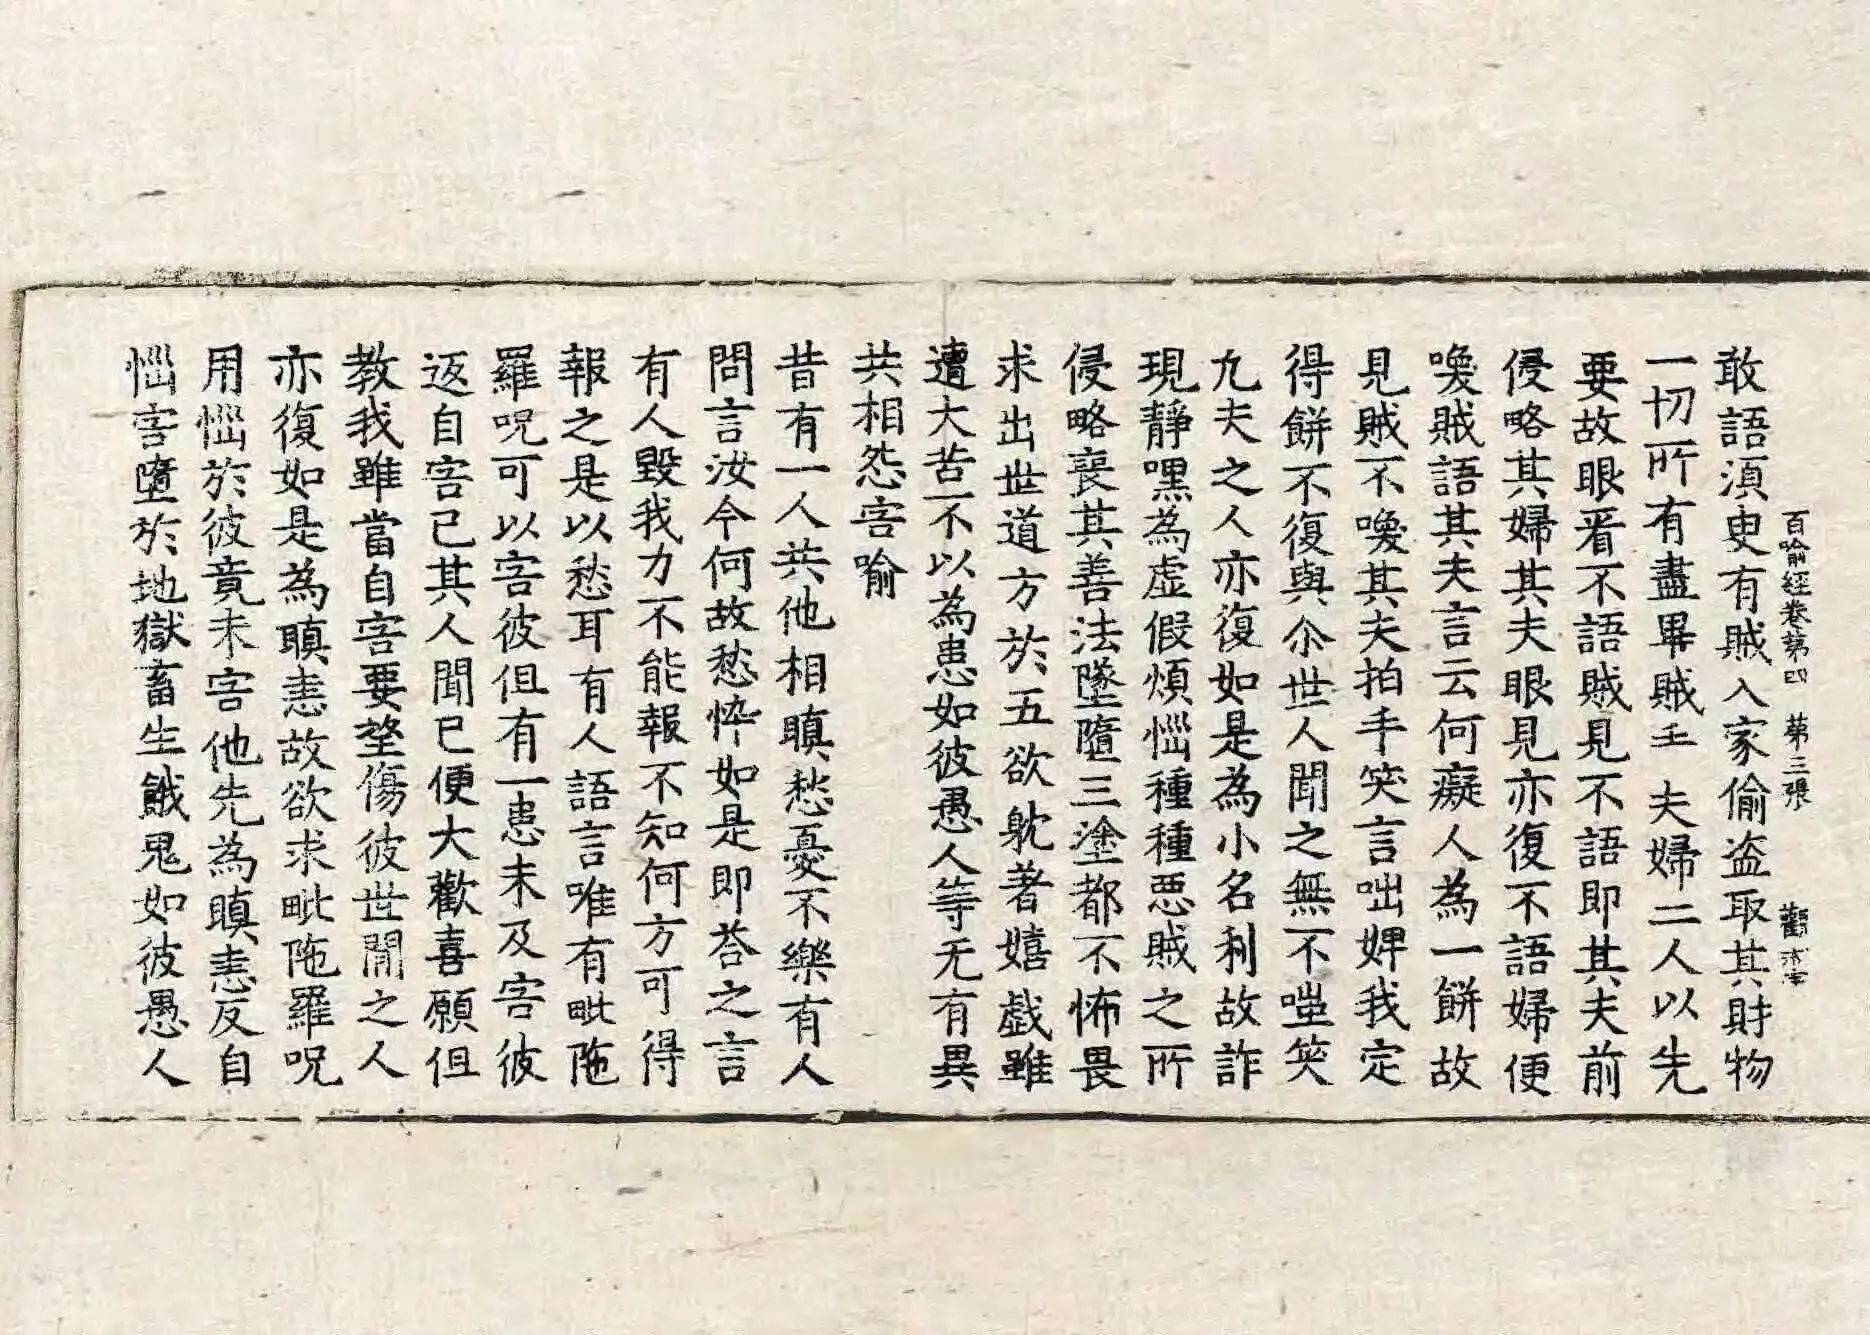 百喻經卷第四 第三張
敢語湏臾有賊入家偷盗取其財物
一切所有盡畢賊手夫婦二人以先
要故眼看不語賊見不語即其夫前
侵略其婦其夫眼見亦復不語婦便
喚賊語其夫言云何癡人為一餅故
見賊不喚其夫拍手笑言咄婢我定
得餅不復與尒世人聞之無不嗤笑
凡夫之人亦復如是為小名利故詐
現靜嘿為虛假煩惱種種惡賊之所
侵略喪其善法墜墮三塗都不怖畏
求出世道方於五欲躭著嬉戲雖
遭大苦不以為患如彼愚人等无有異
共相怨害喻
昔有一人共他相瞋愁憂不樂有人
問言汝今何故愁悴如是即荅之言
有人毀我力不能報不知何方可得
報之是以愁耳有人語言唯有毗陁
羅呪可以害彼但有一患未及害彼
返自害已其人聞已便大歡喜願但
教我雖當自害要望傷彼世間之人
亦復如是為瞋恚故欲求毗陁羅呪
用惱於彼竟未害他先為瞋恚反自
惱害墮於地獄畜生餓鬼如彼愚人